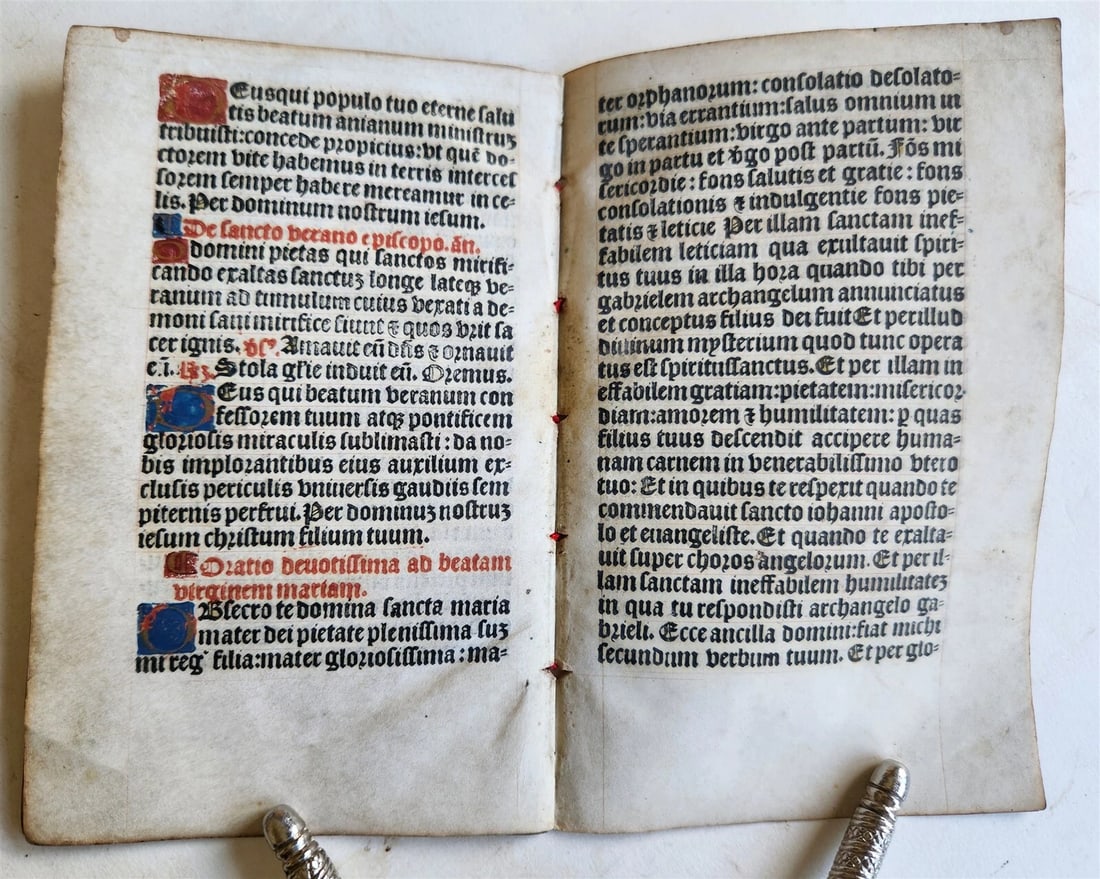 Deusqui populo tuo eterne salu
tis beatum anianum ministruʒ
tribuisti:concede propicius:vt quē do-
ctorem vite habemus in terris interces
sorem semper habere mereamur in ce-
lis. Per dominum nostrum iesum.
De sancto verano episcopo. añ.
O domini pietas qui sanctos mirifi-
cando exaltas sanctuʒ longe lateqʒ ve-
ranum ad tumulum cuius vexati a de-
moni sani mirifice fiunt ⁊ quos vrit sa
cer ignis. v̄s. Amauit eū dn̄s ⁊ ornauit
e.i. Stola glīe induit eū. Oremus.
Deus qui beatum veranum con
fessorem tuum atqʒ pontificem
gloriosis miraculis sublimasti : da no-
bis implorantibus eius auxilium ex-
clusis periculis vniuersis gaudiis sem
piternis perfrui. Per dominuʒ nostruʒ
iesum christum filium tuum.
Oratio deuotissima ad beatam
virginem mariam.
OBsecro te domina sancta maria
mater dei pietate plenissima suʒ
mi reg⁹ filia:mater gloriosissima : ma-
ter orphanorum: consolatio desolato-
rum: via errantium:salus omnium in
te sperantium: virgo ante partum: vir
go in partu et v̄go post partū. Fōs mi
sericordie : fons salutis et gratie : fons
consolationis ⁊ indulgentie fons pie-
tatis ⁊ leticie Per illam sanctam inef-
fabilem leticiam qua exultauit spiri-
tus tuus in illa hora quando tibi per
gabrielem archangelum annunciatus
et conceptus filius dei fuit Et per illud
diuinum mysterium quod tunc opera
tus est spiritussanctus. Et per illam in
effabilem gratiam:pietatem:misericor-
diam:amorem ⁊ humilitatem: ꝑ quas
filius tuus descendit accipere huma-
nam carnem in venerabilissimo vtero
tuo: Et in quibus te respexit quando te
commendauit sancto iohanni aposto-
lo et euangeliste. Et quando te exalta-
uit super choros angelorum. Et per il-
lam sanctam ineffabilem humilitateʒ
in qua tu respondisti archangelo ga-
brieli. Ecce ancilla domini:fiat michi
secundum verbum tuum. Et per glo-